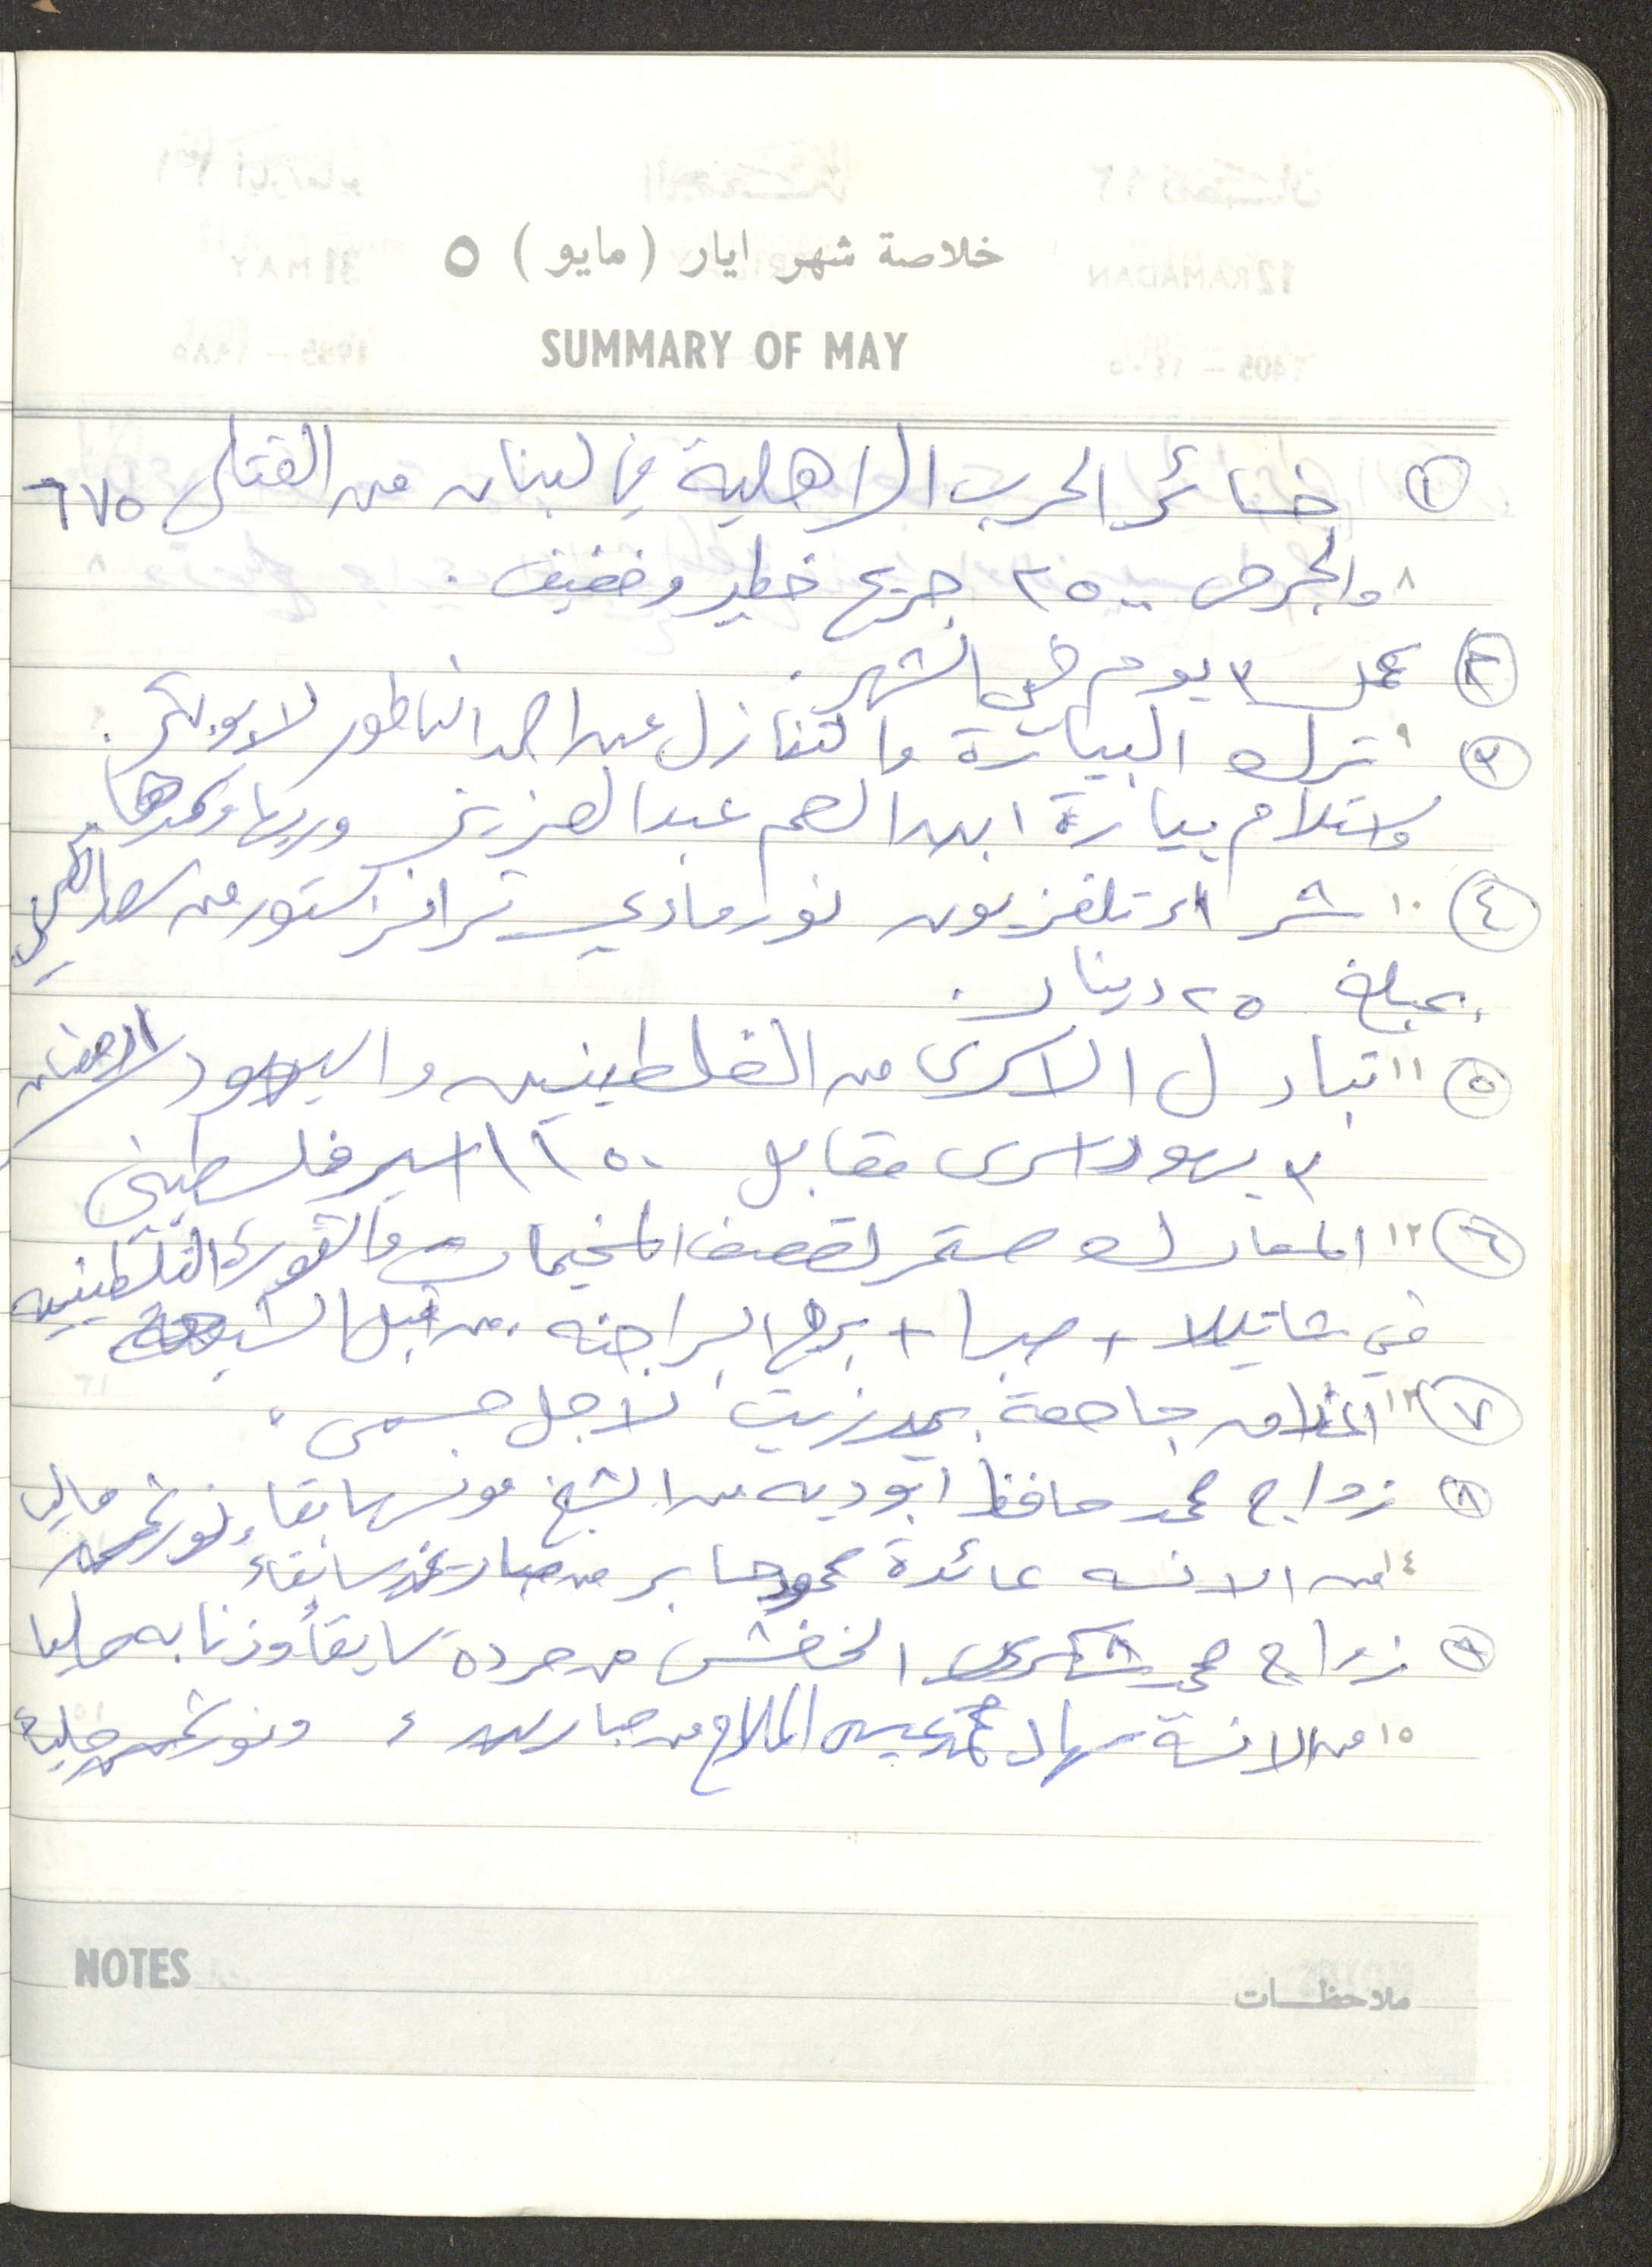 خلاصة شهر ايار (مايو) ٥
SUMMARY OF MAY
① خسائر الحرب الاهلية في لبنان من القتلى ٦٧٥
٨ والجرحى ٢٥٠٠ جريح خطير وخفيف.
② عمل ٣ يوم في الشهر.
③ ٩ ترك البيارة والتنازل عن احمد الناطور لابو بكر.
واستلام بيارة ابن العم عبد العزيز وريها
④ ١٠ شراء تلفزيون نورمادي ترانزستور من
بمبلغ ٢٥ دينار.
⑤ ١١ تبادل الاسرى من الفلطينيين واليهود
٣ يهود اسرى مقابل ١١٥٠ اسير فلسطيني
⑥ ١٢ المعارك مستمر لقصف المخيمات والثورة الفلطينيه
في شاتيلا + صبرا + برج البراجنه من قبل الشيعة
⑦ ١٣ اغلاق جامعة بير زيت لاجل مسمى.
⑧ زواج محمد حافظ ابو ديه من الشيخ مونس سابقا ونور شمس حاليا
١٤ من الانسه عائدة محمود جابر من سابقاً
⑨ زواج محمد شكري الخفش من مرده سابقاً وزنابه حاليا
١٥ من الانسة نهاد محمد عيسى الملاح من صبارين ونور شمس حالية
NOTES
ملاحظات